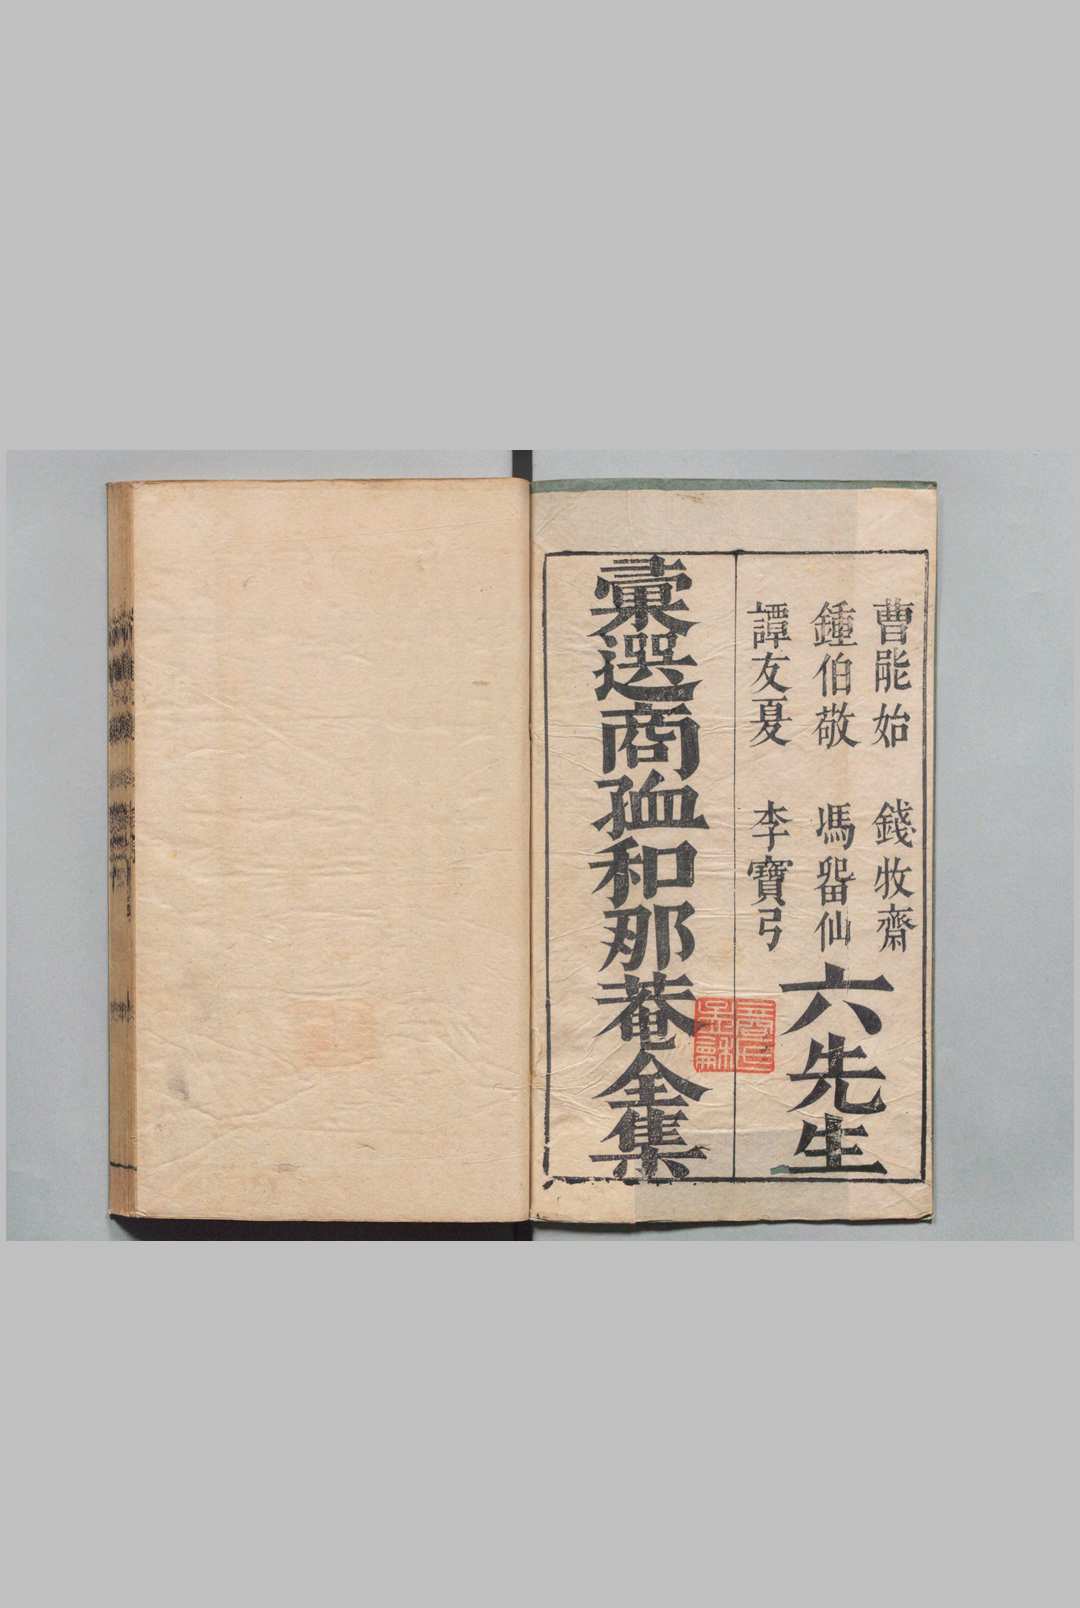 曹能始　錢牧齋
鍾伯敬　馮畱仙
譚友夏　李寶弓
六先生
彙選商孟和那菴全集